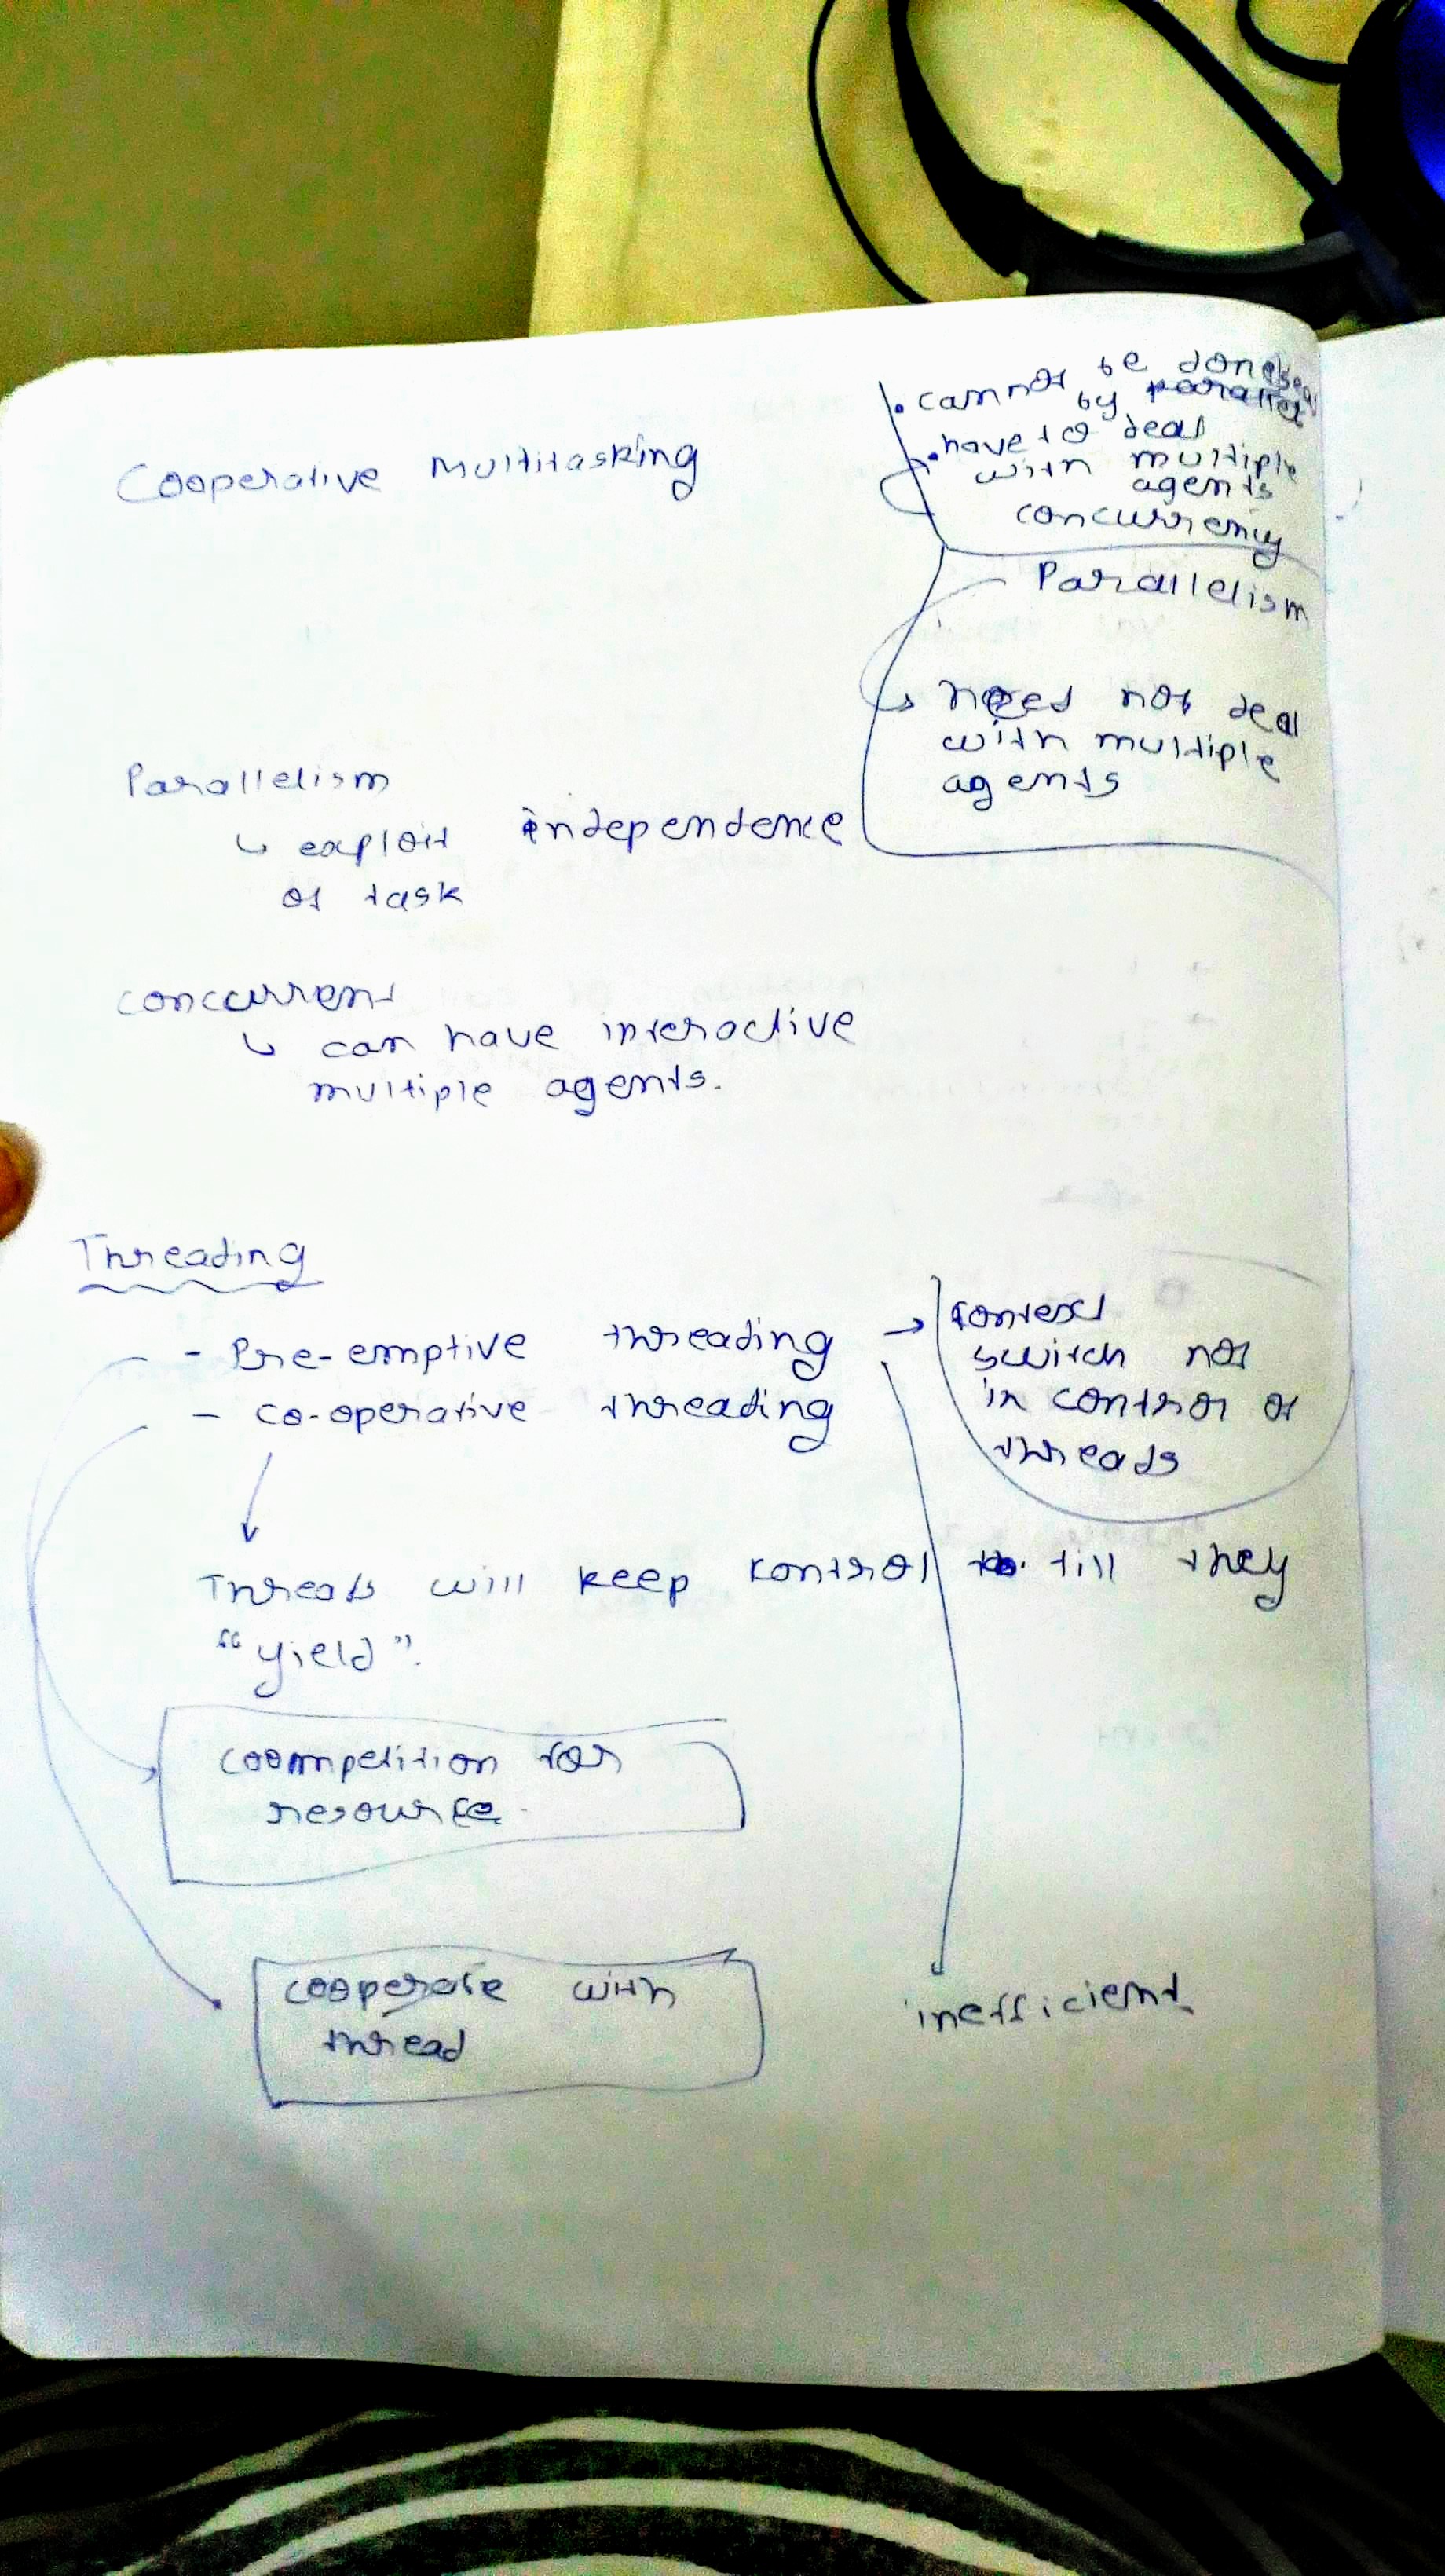 Cooperative Multitasking
• cannot be done
by parallel
• have to deal
with multiple
agents
concurrency
Parallelism
need not deal
with multiple
agents
Parallelism
↳ exploit independence
of task
concurrent
↳ can have interactive
multiple agents.
Threading
- Pre-emptive threading →
- co-operative threading
context
switch not
in control of
threads
Threads will keep kontrol till they
"yield".
coompetition for
resource
cooperate with
thread
inefficient